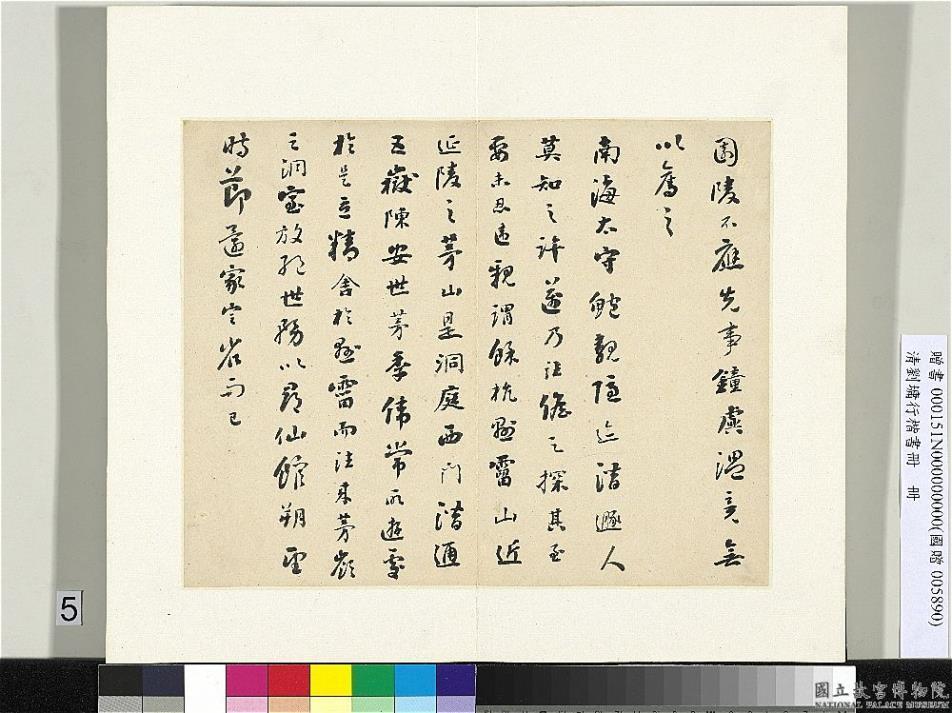 園陵不應先事鐘虡溫音無
以奮之
南海太守鮑靚隱迹潛遯人
莫知之許邁乃往候之探其至
要未忍違親謂餘杭懸霤山近
延陵之茅山是洞庭西門潛通
五嶽陳安世茅季偉常所遊處
於是立精舍於懸霤而往來茅嶺
之洞室放絕世務以尋仙館朔望
時節還家定省而已
贈書 000151N000000000(國贈 005890)
清劉墉行楷書冊　冊
5
國立故宮博物院
NATIONAL PALACE MUSEUM